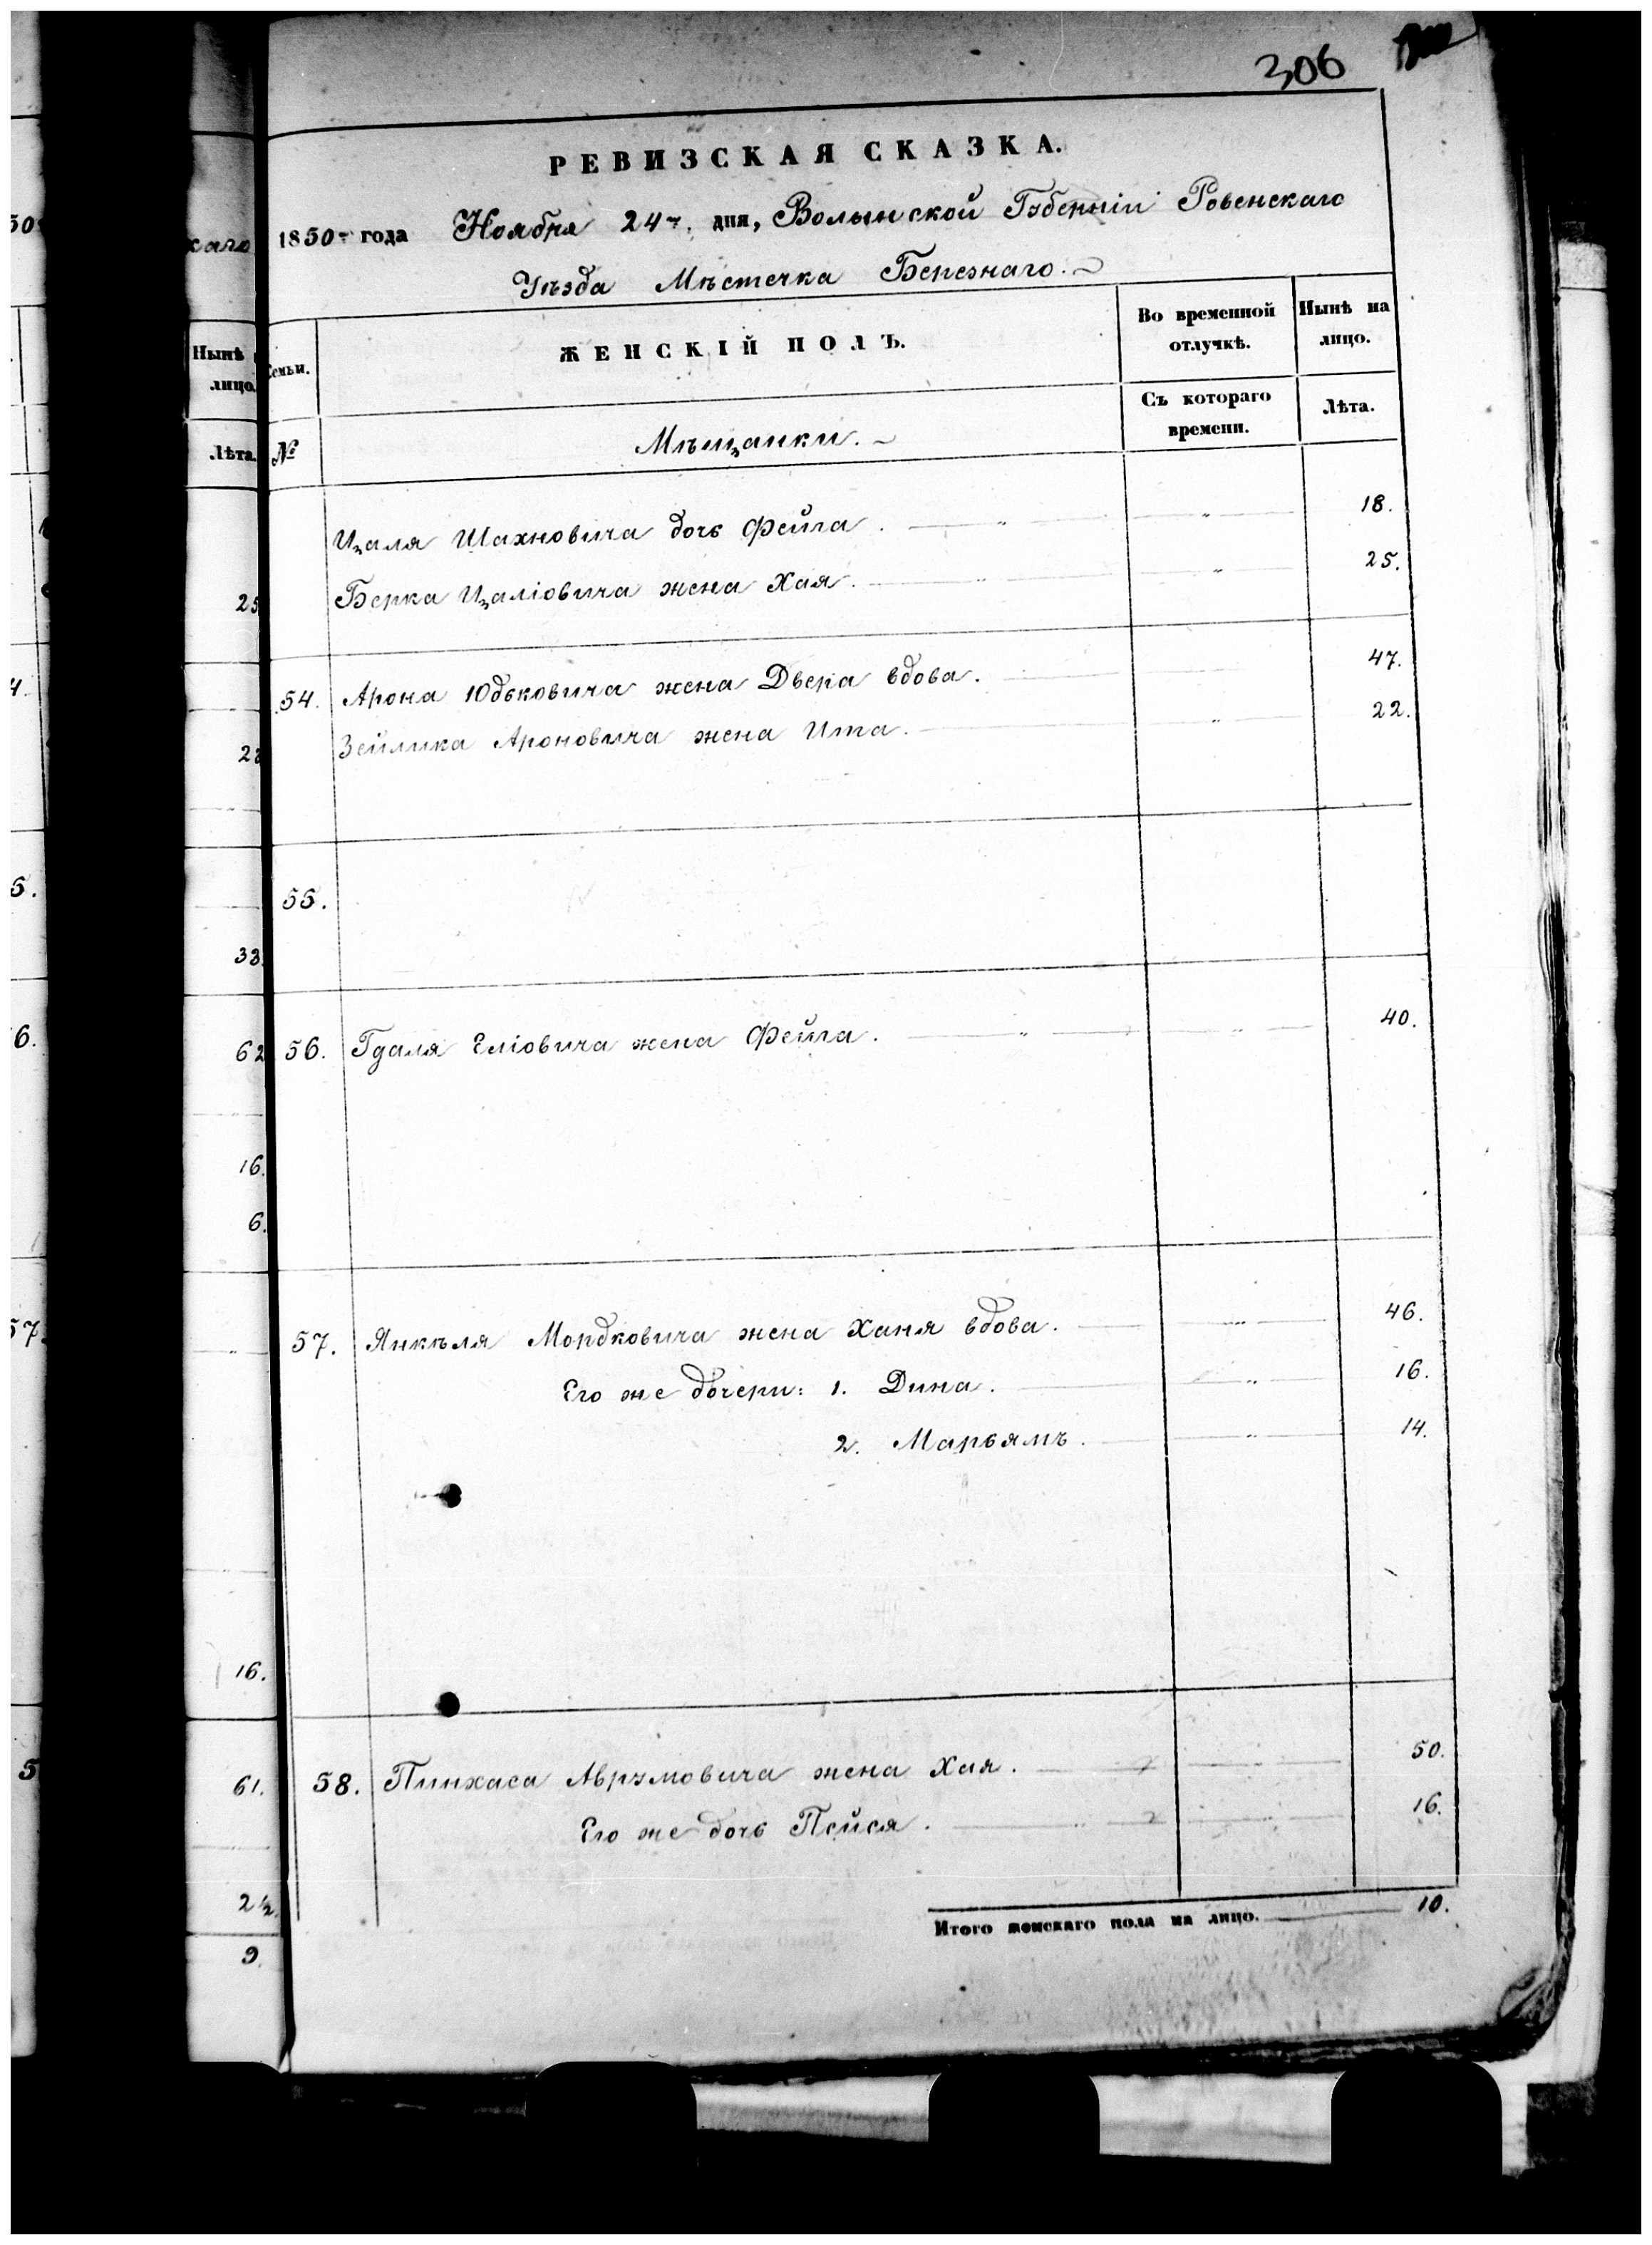 306
50
каго
РЕВИЗСКАЯ СКАЗКА.
1850 года Ноября 24 дня, Волынской Губерніи Ровенскаго
Уѣзда Мѣстечка Березнаго.
Нынѣ
лицо.
Лѣта.
Семьи.
№
ЖЕНСКІЙ ПОЛЪ.
Во временной отлучкѣ.
Нынѣ на лицо.
Съ котораго времени.
Лѣта.
Мѣщанки.
Цаля Шахновича дочь Фейга. " " 18.
25
Берка Цаліовича жена Хая. " " 25.
54. Арона Юдьковича жена Двера вдова. 47.
Зейлика Ароновича жена Ита. " 22.
4.
5.
55.
33.
6.
62
56. Гдаля Еліовича жена Фейга. " " 40.
16.
6.
57.
57. Янкѣля Мордковича жена Ханя вдова. " 46.
Его же дочери: 1. Дина. " 16.
2. Марьямъ. " 14.
16.
5
61.
58. Пинхаса Аврумовича жена Хая. " 50.
Его же дочь Пейся. " " 16.
2½.
9.
Итого женскаго пола на лицо. 10.